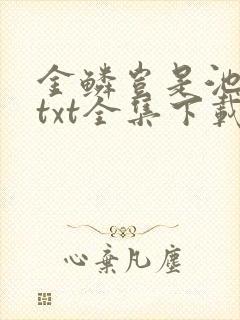 金鳞岂是池
txt全集下载
心弃凡尘